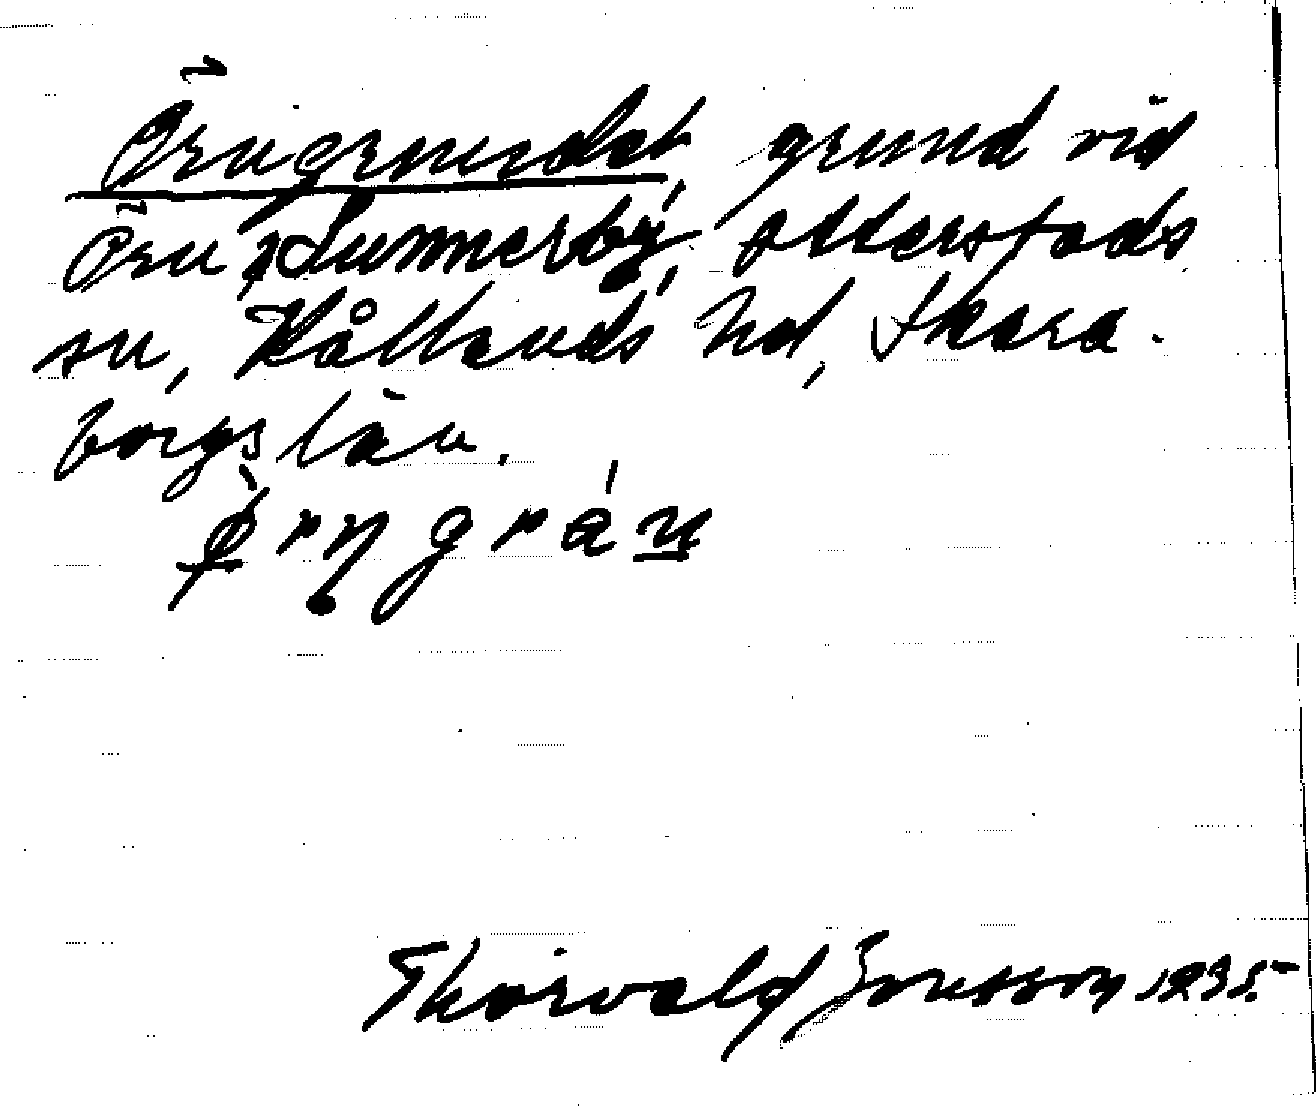 Örngrundet, grund vid
Örn, Sunnerby, Otterstads
sn, Kållands hd, Skara-
borgs län.
Thorvald Jonsson 1935